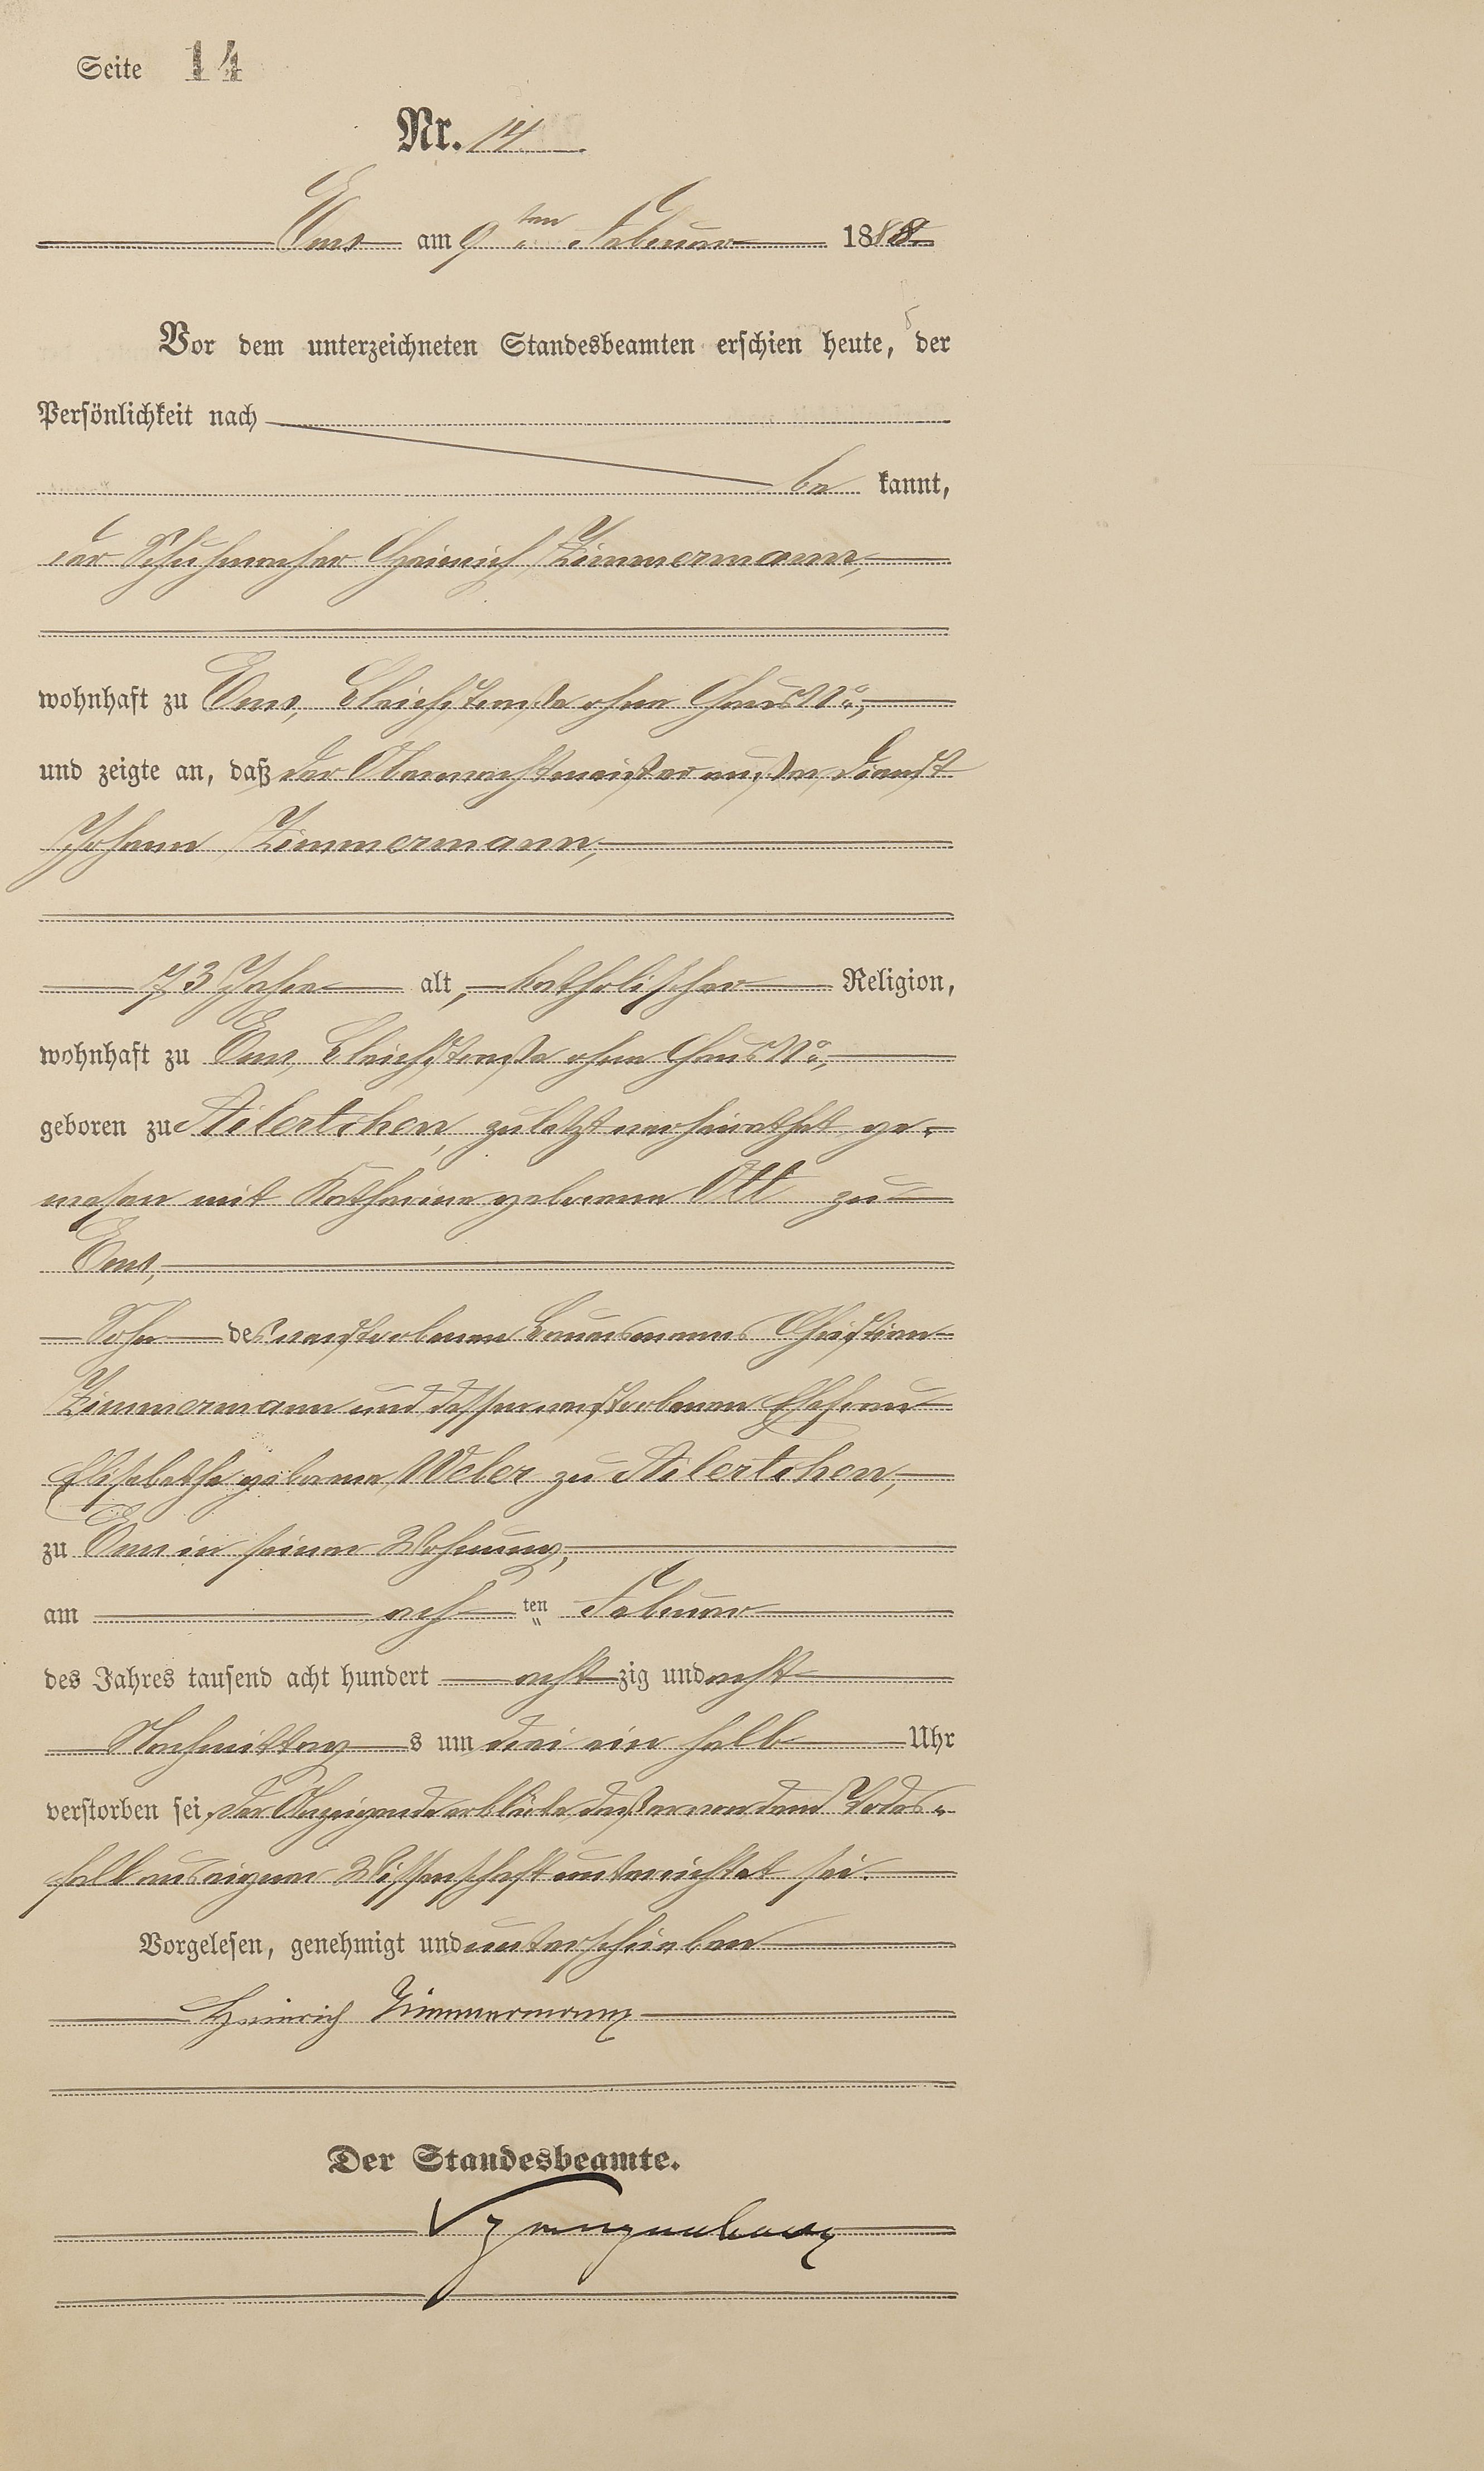 Seite 14
Nr. 14
Ems am 9 ten Februar 1888
Vor dem unterzeichneten Standesbeamten erschien heute, der
Persönlichkeit nach
be kannt,
der Schuhmacher Heinrich Zimmermann,
wohnhaft zu Ems, Bleichstraße ohne Haus No.,
und zeigte an, daß der Oberwachtmeister außer Dienst
Johann Zimmermann,
73 Jahre alt, katholischer Religion,
wohnhaft zu Ems, Bleichstraße ohne Haus No.,
geboren zu Ailertchen, zuletzt verheirathet ge-
wesen mit Katharine geborene Ott zu
Ems,
Sohn des verstorbenen Bauersmanns Christian
Zimmermann und dessen verstorbenen Ehefrau
Elisabethe geborene Weber zu Ailertchen,
zu Ems in seiner Wohnung,
am ach ten Februar
des Jahres tausend acht hundert acht zig und acht
Nachmittag s um drei ein halb Uhr
verstorben sei, der Anzeigende erklärte daß er von dem Todes-
fall aus eigener Wissenschaft unterrichtet sei.
Vorgelesen, genehmigt und unterschrieben
Heinrich Zimmermann
Der Standesbeamte.